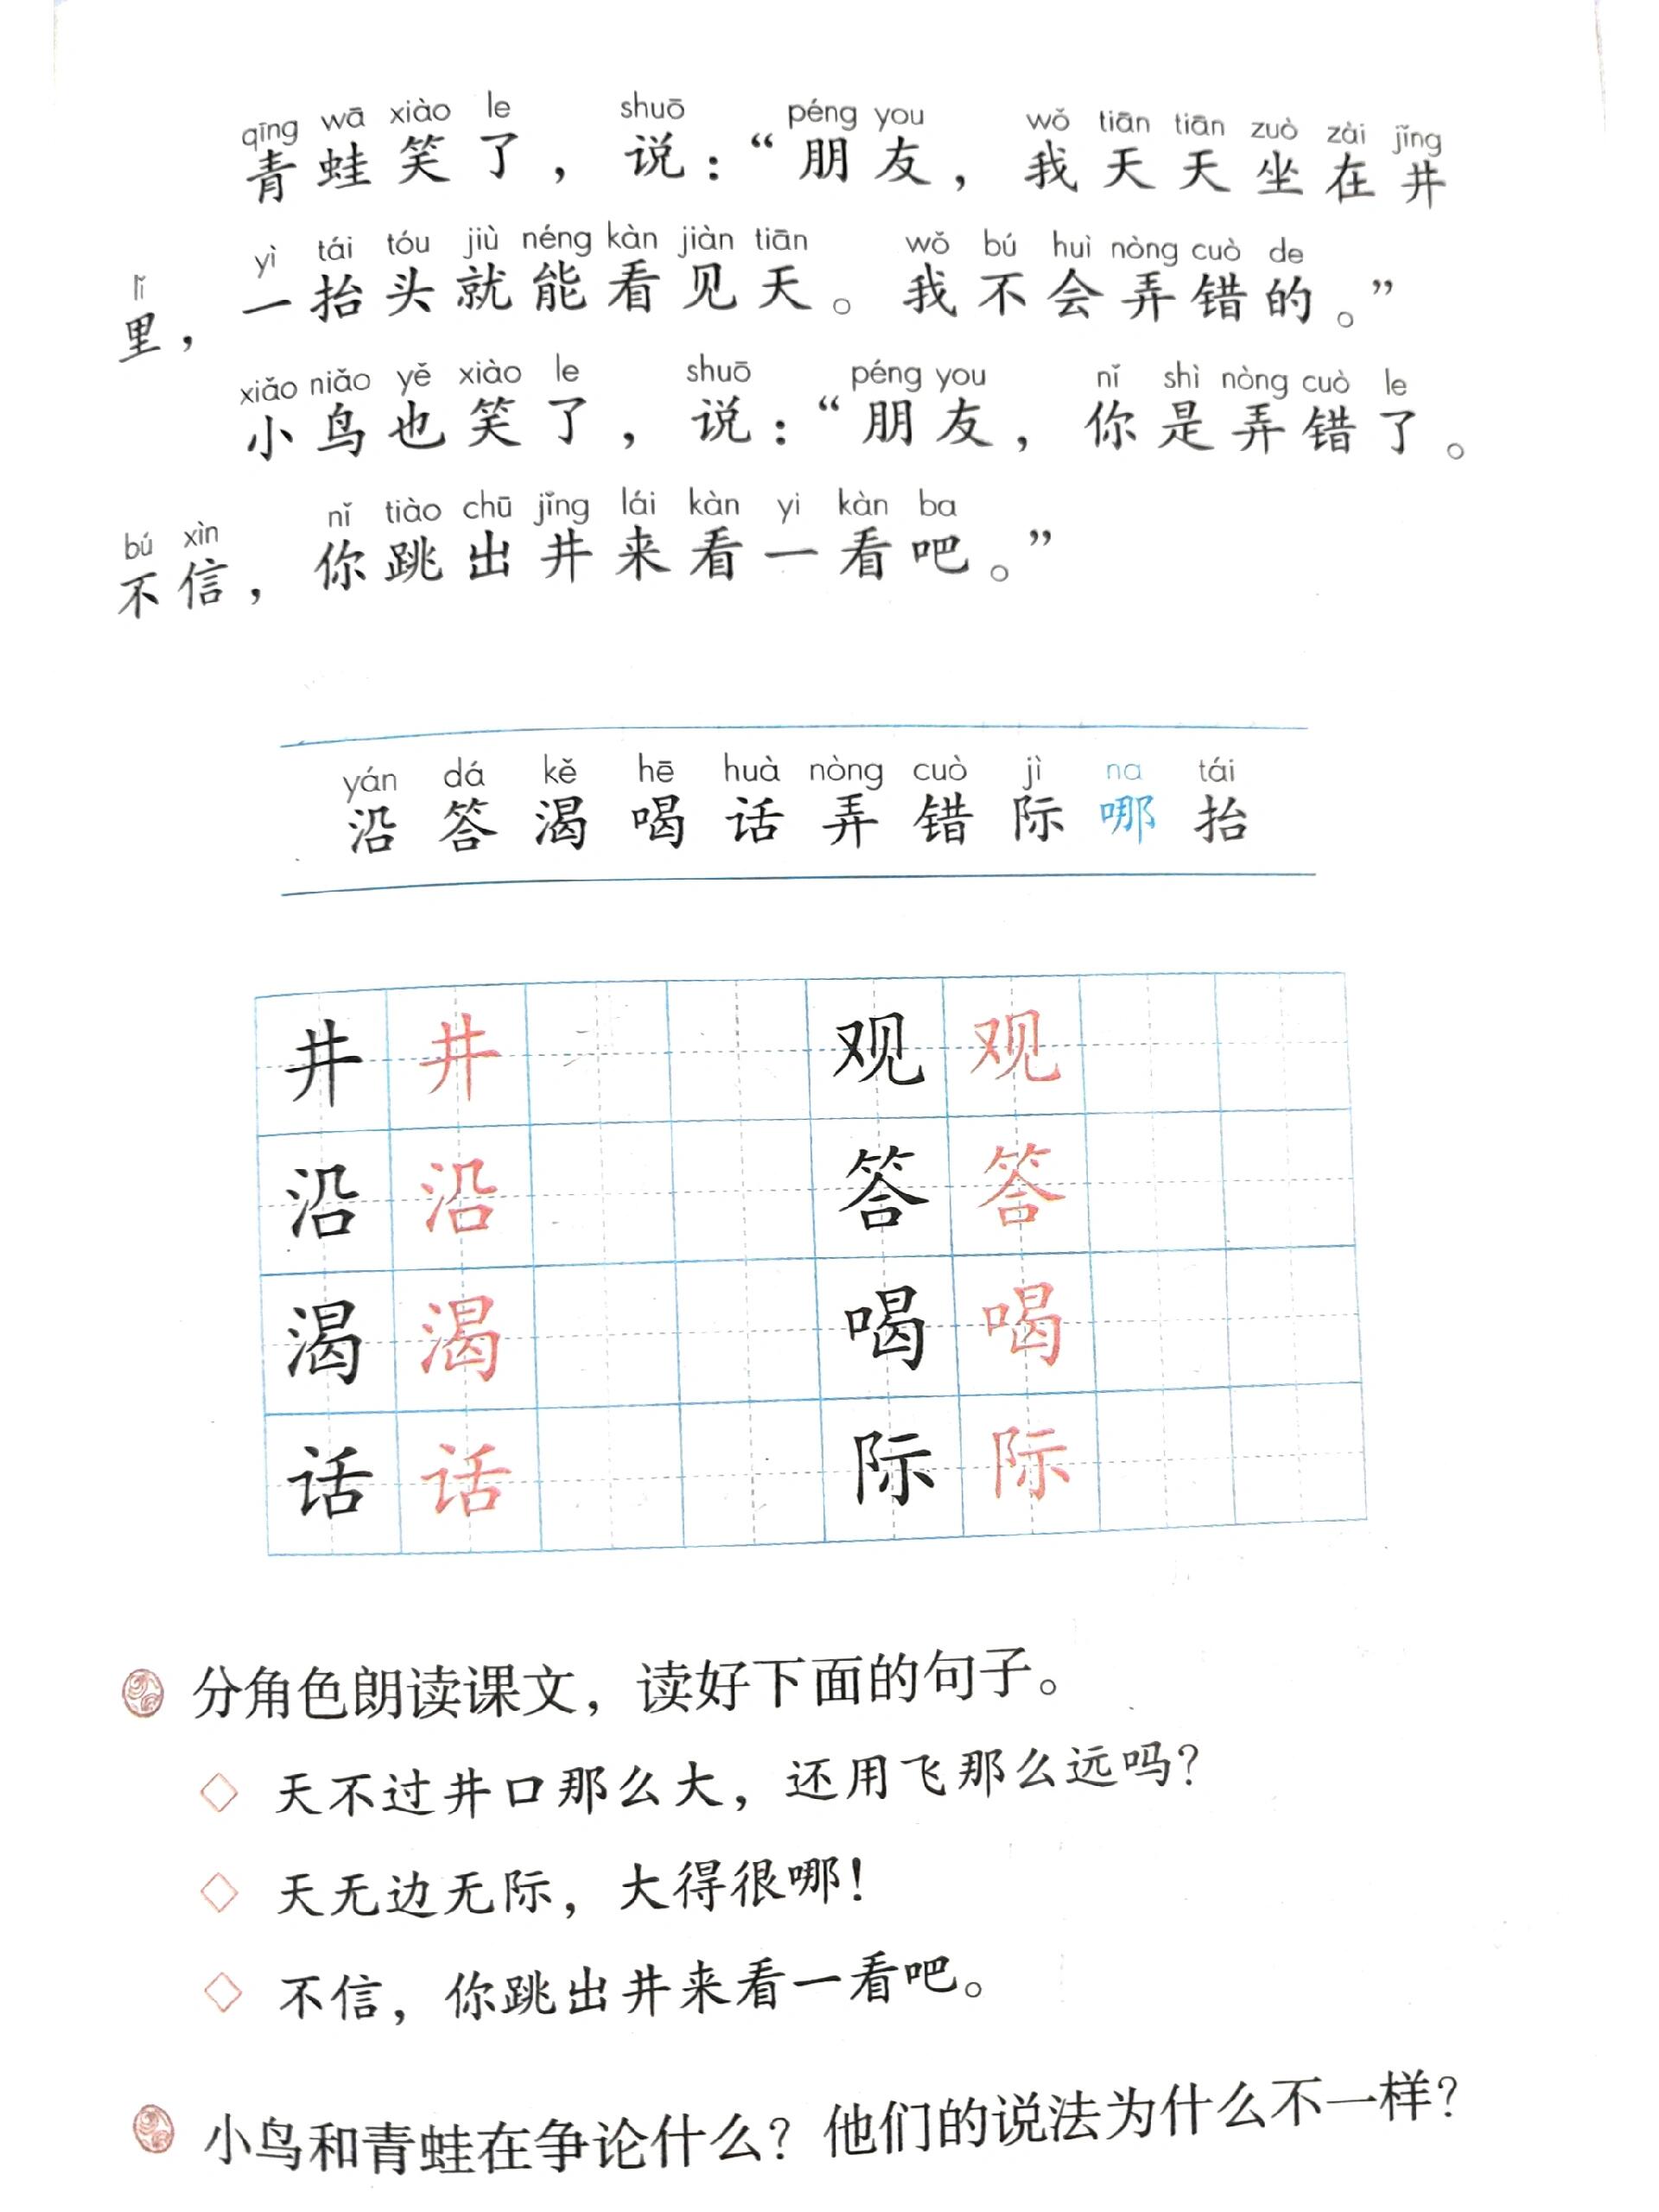 qīng wā xiào le shuō péng you wǒ tiān tiān zuò zài jǐng
青蛙笑了，说：“朋友，我天天坐在井
lǐ yì tái tóu jiù néng kàn jiàn tiān wǒ bú huì nòng cuò de
里，一抬头就能看见天。我不会弄错的。”
xiǎo niǎo yě xiào le shuō péng you nǐ shì nòng cuò le
小鸟也笑了，说：“朋友，你是弄错了。
bú xìn nǐ tiào chū jǐng lái kàn yi kàn ba
不信，你跳出井来看一看吧。”
yán dá kě hē huà nòng cuò jì na tái
沿 答 渴 喝 话 弄 错 际 哪 抬
井 井 观 观
沿 沿 答 答
渴 渴 喝 喝
话 话 际 际
分角色朗读课文，读好下面的句子。
◇ 天不过井口那么大，还用飞那么远吗？
◇ 天无边无际，大得很哪！
◇ 不信，你跳出井来看一看吧。
小鸟和青蛙在争论什么？他们的说法为什么不一样？